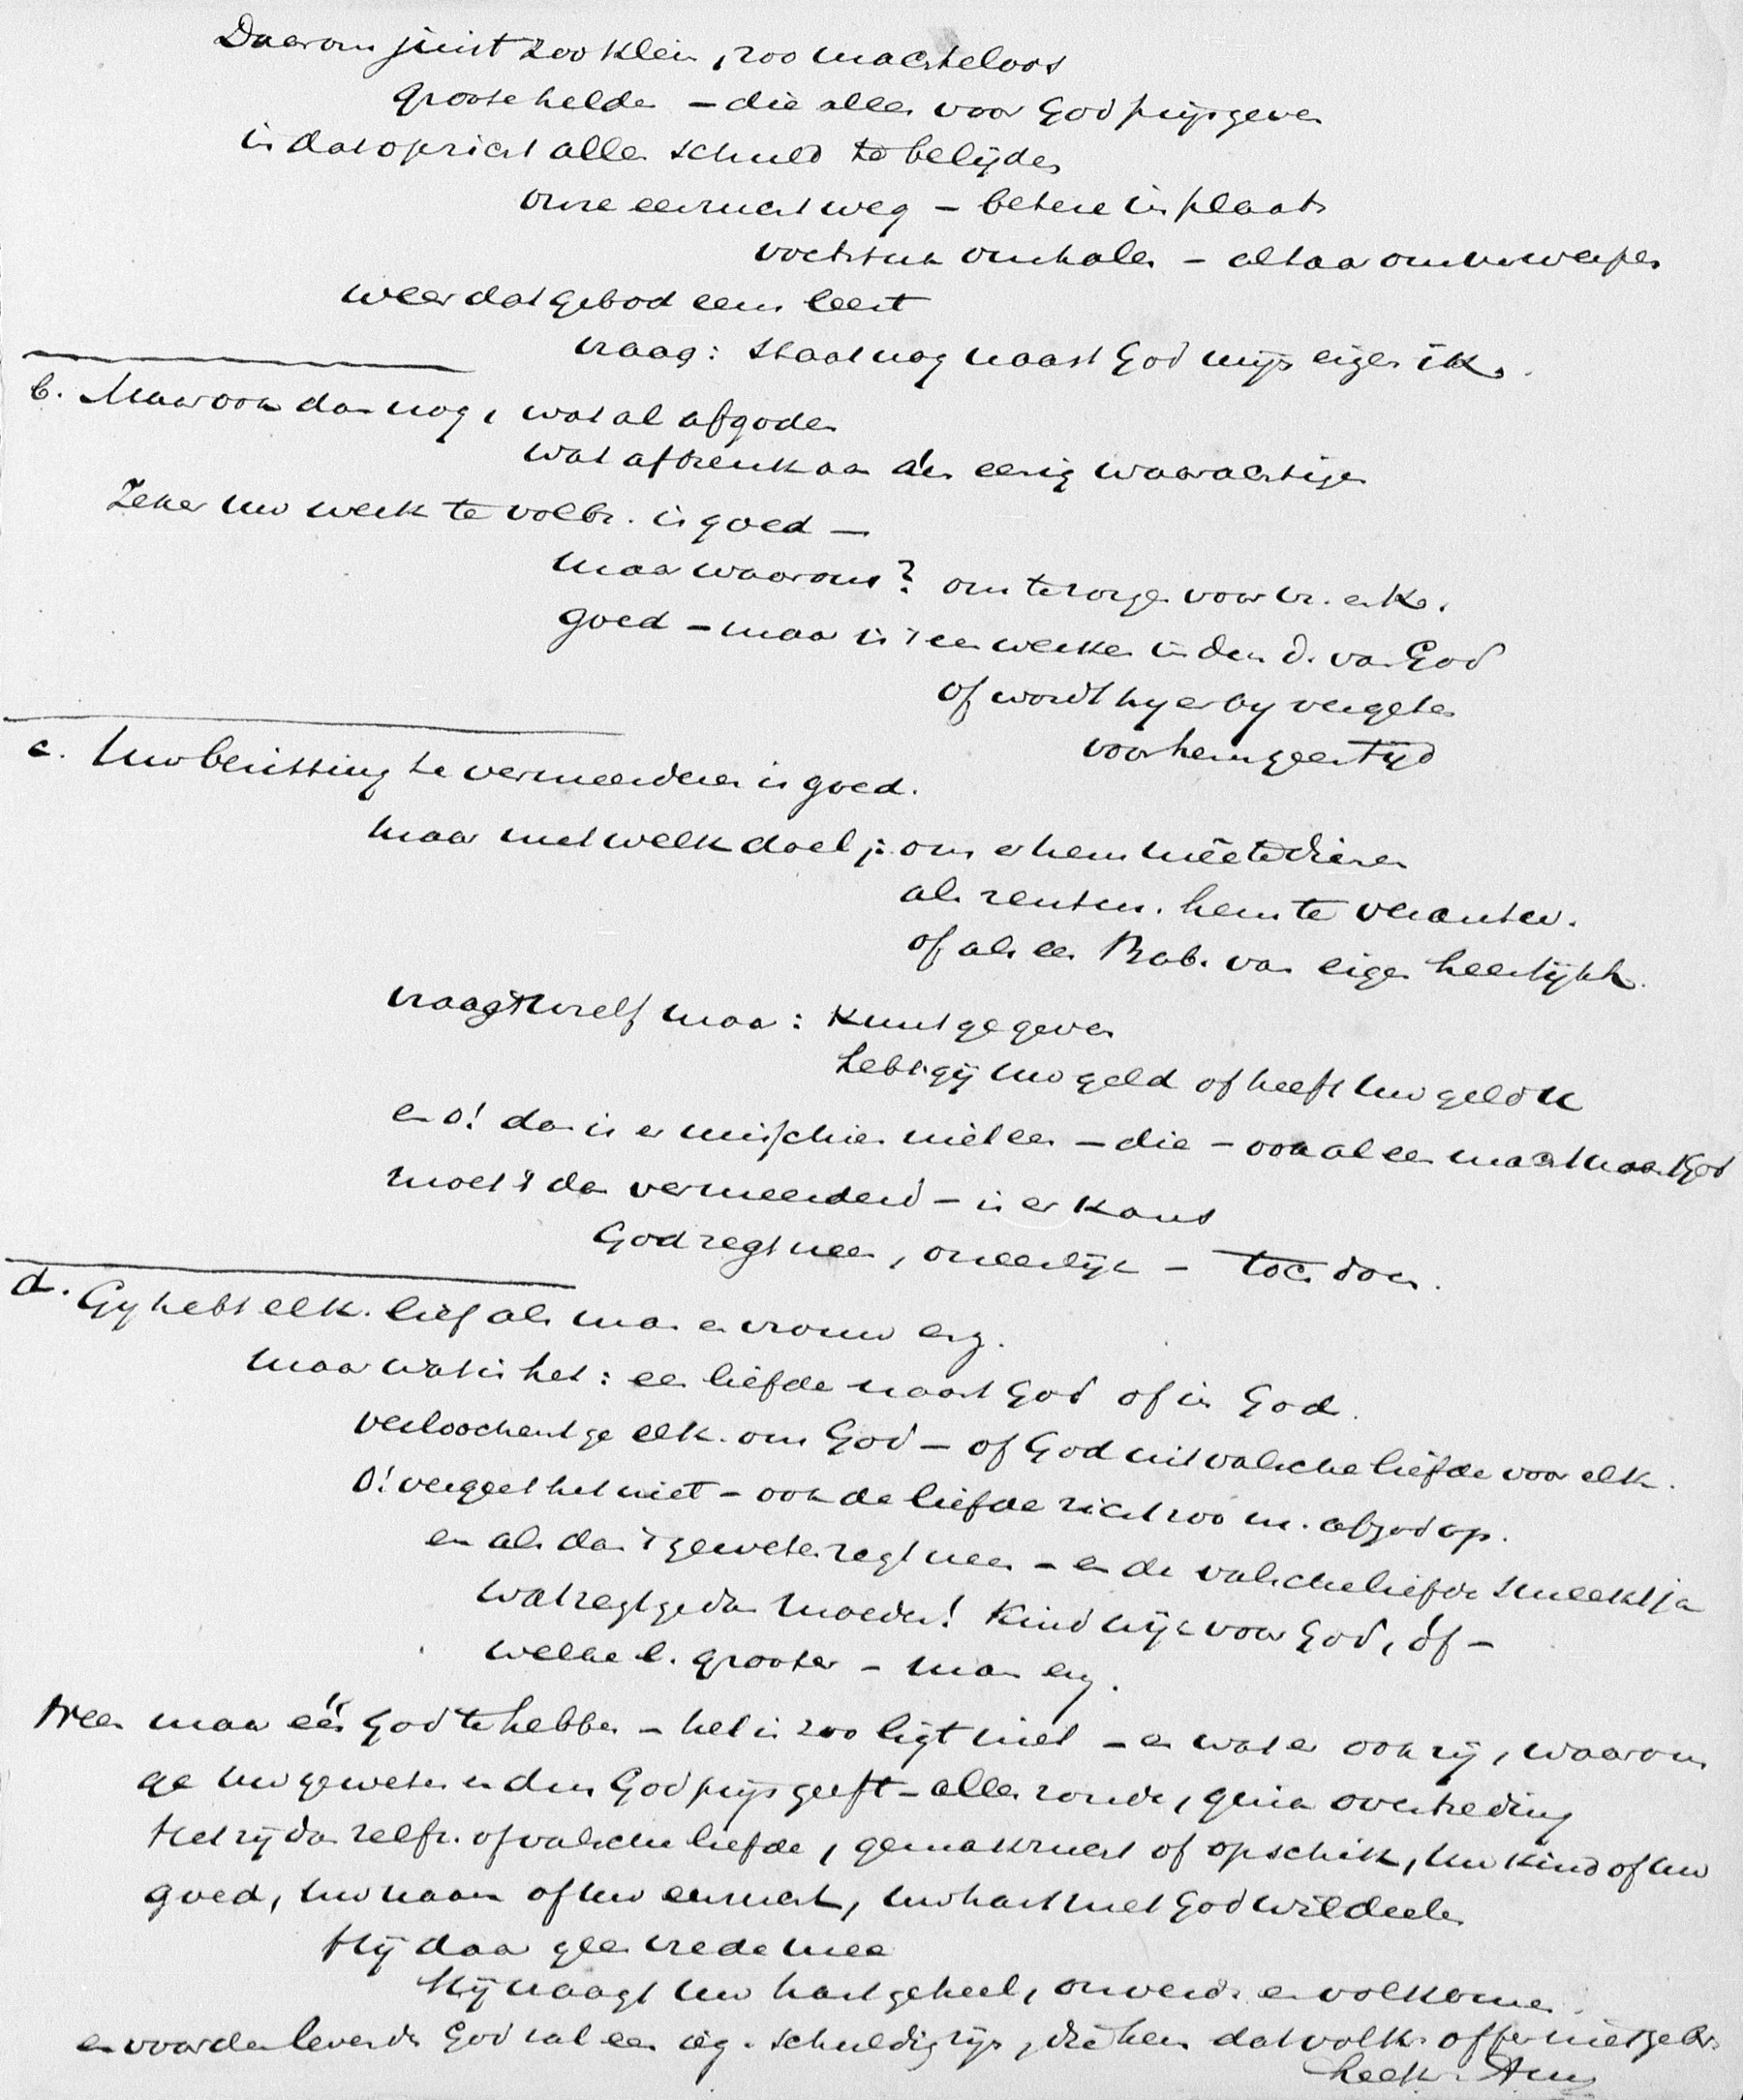 Daarom juist zoo klein, zoo machteloos
groote helden – die alles voor God prijsgeven
in dat opzicht alles schuld te belijden
onze eerzucht weg – betere in plaats
voetstuk omhalen – altaar omverwerpen
weer dat gebod eens leert
vraag: staat nog naast God mijn eigen ik.
b. Maar ook dan nog, wat al afgoden
wat aftrenk aan den eenig waarachtigen
Zeker uw werk te volbr. is goed –
maar waarom? om te zorgen voor vr. en k.
goed – maar is 't een werken in den d. van God
of wordt hy er by vergeten
voor hem geen tijd
c. Uw bezitting te vermeerderen is goed.
maar met welk doel: om er hem meê te dienen
als rentm. hem te verantw.
of als een Bab. van eigen heerlijkh.
vraagt Uzelf maar: Kunt ge geven
hebt gij uw geld of heeft uw geld U
en o! dan is er misschien niet een – die – ook al een macht naast God
moet 't dan vermeerderd – is er kans
God zegt neen, oneerlijk – toch doen.
d. Gy hebt elk. lief als man en vrouw enz.
maar wat is het: een liefde naast God of in God.
verloochent ge elk. om God – of God uit valsche liefde voor elk.
O! vergeet het niet – ook de liefde richt zoo m. afgod op.
en als dan 't geweten zegt neen – en de valsche liefde smeekt ja
wat zegt ge dan Moeder! Kind wijk voor God, óf –
welke l. grooter – man enz.
Neen maar één God te hebben – het is zoo ligt niet – en wat er ook zij, waarom
ge uw geweten en dus God prijs geeft – alle zonde, overtreding
Het zij dan zelfz. of valsche liefde, gemakzucht of opschik, uw kind of uw
goed, uw naam of uw eerzucht, uw hart met God wil deelen
Hij daar geen vrede mee
Hij vraagt uw hart geheel, onverd. en volkomen.
en voor den levenden God zal een ieg. schuldig zijn, die hem dat volk. offer niet gebr.